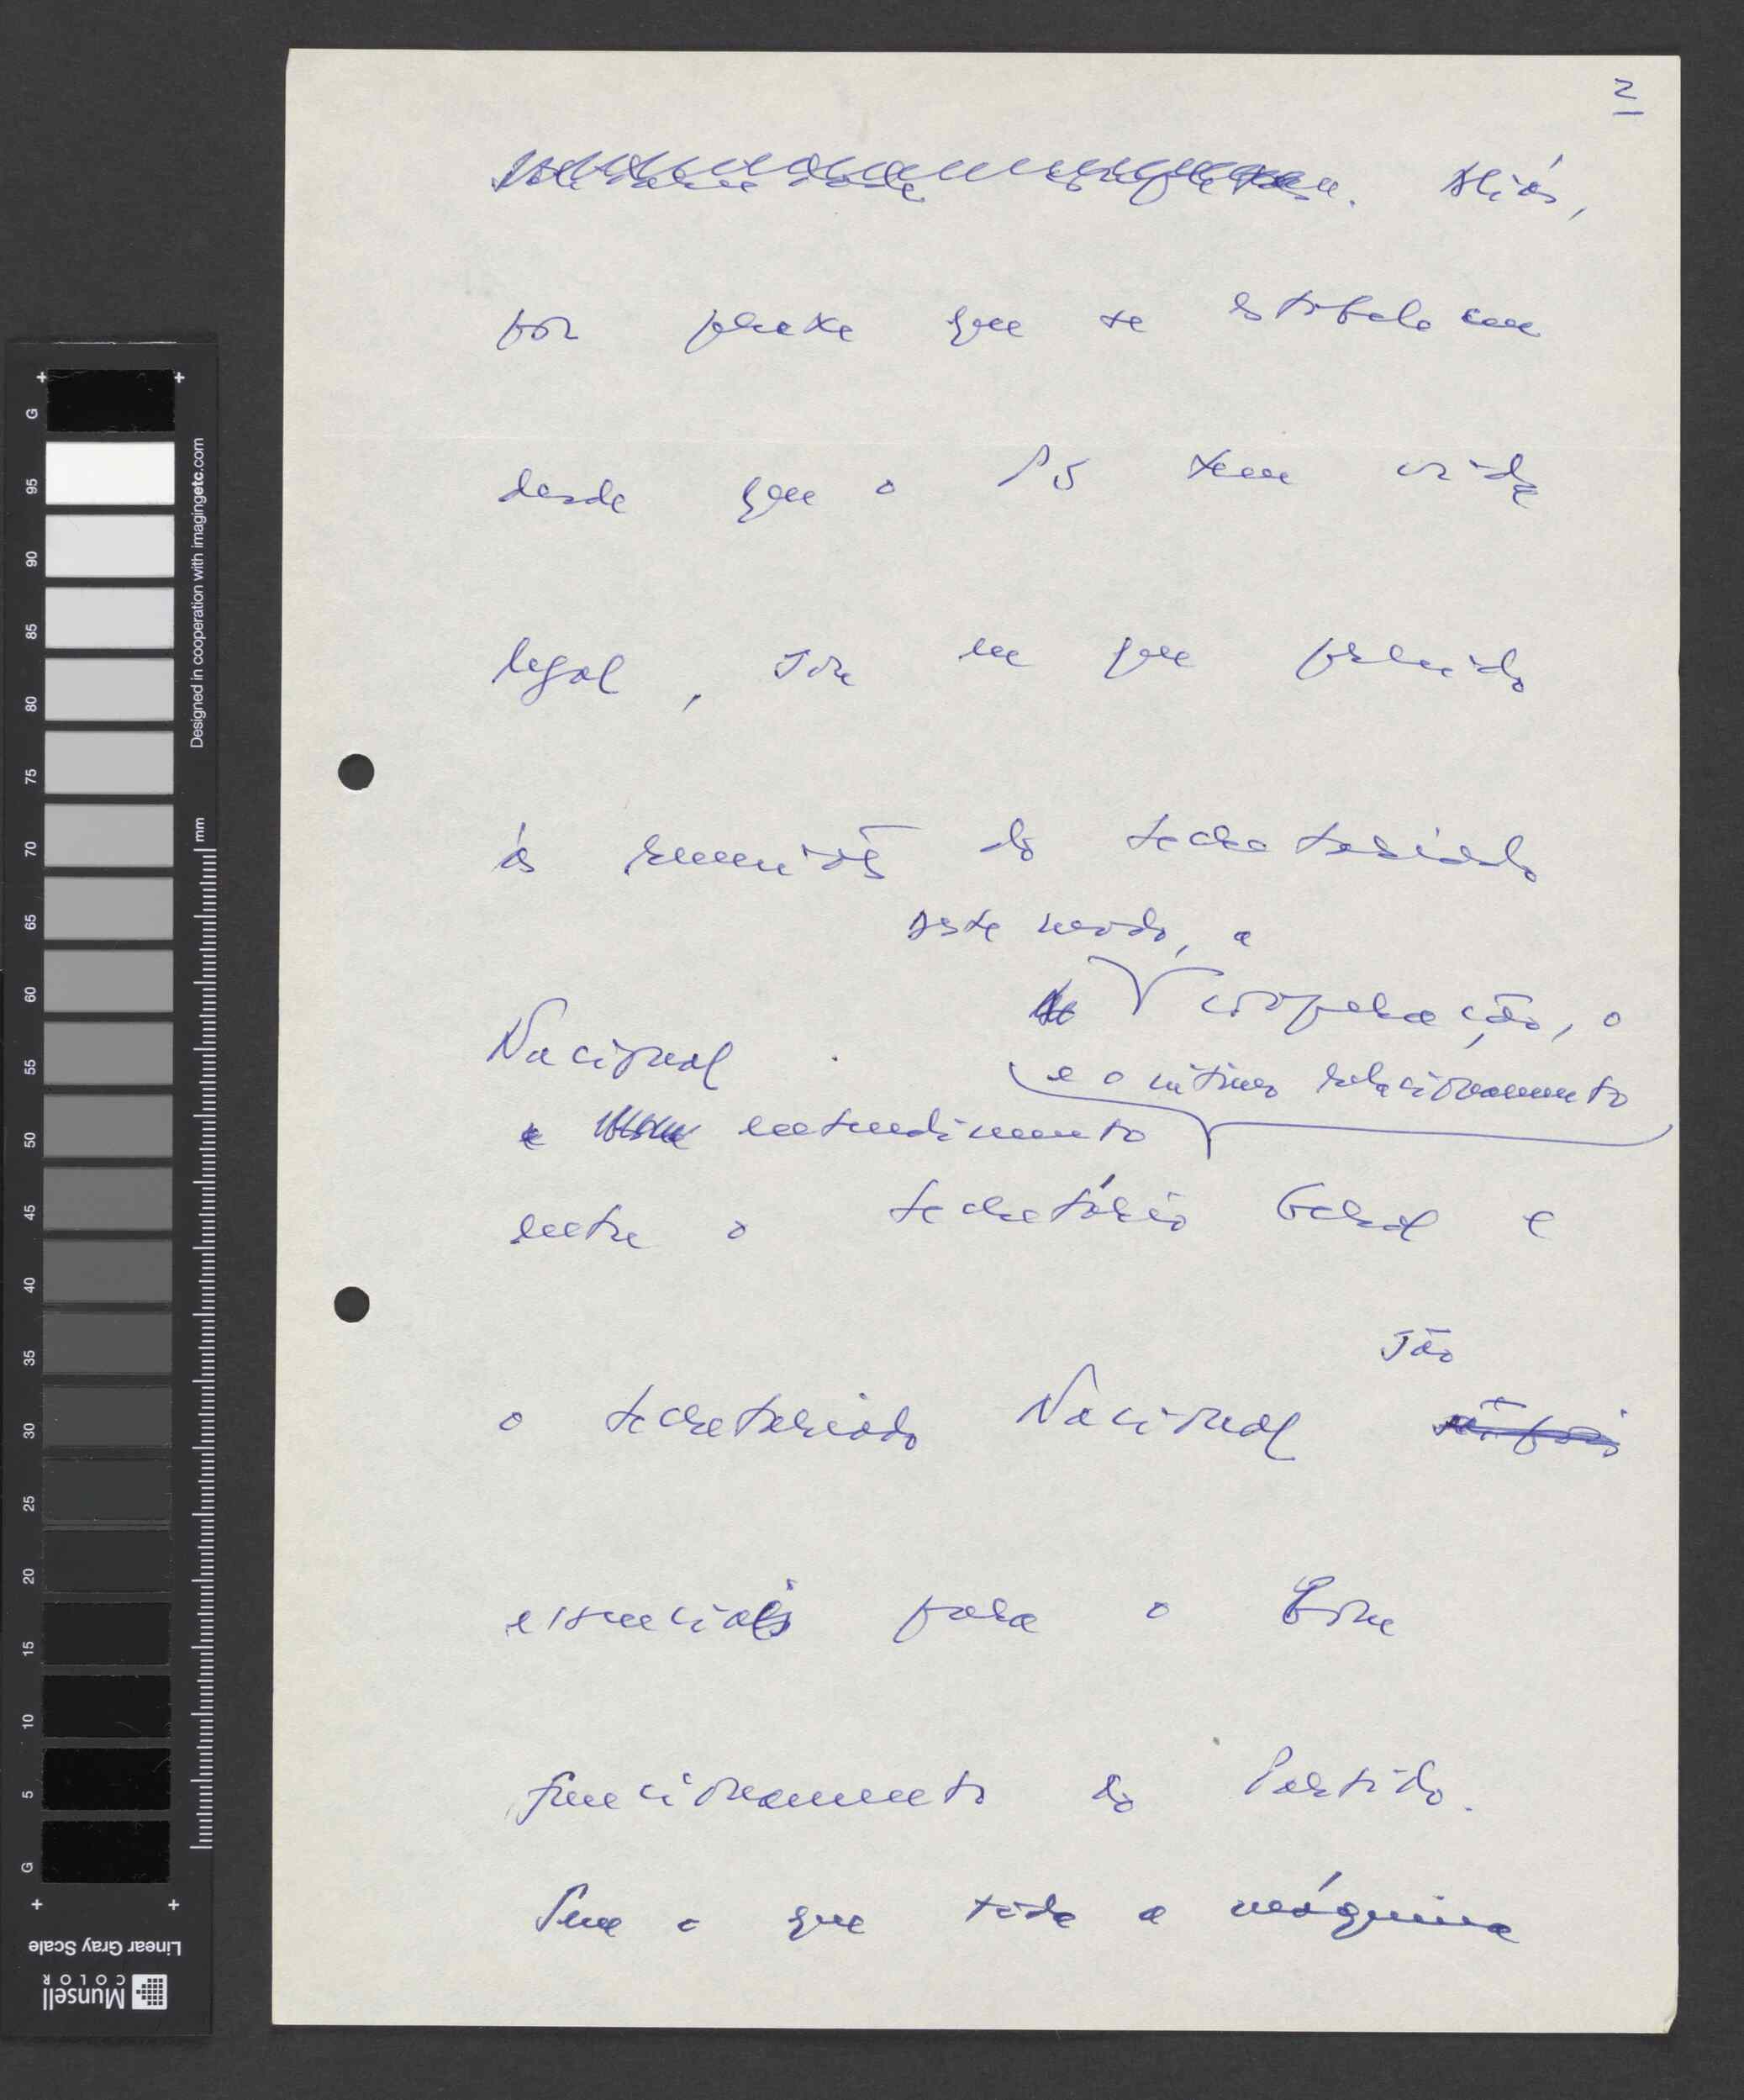 2
Aliás,
por praxe que se estabeleceu
desde que o PS tem vida
legal, sou eu que presido
às reuniões do Secretariado
Deste modo, a
Nacional. cooperação, o
e o íntimo relacionamento
entendimento
entre o Secretário Geral e
São
o Secretariado Nacional
essenciais para o bom
funcionamento do Partido.
Sem o que toda a máquina
G
95
90
85
80
75
70
65
60
55
50
45
40
35
30
25
20
15
10
5
G
mm
Designed in cooperation with imagingetc.com
Linear Gray Scale
Munsell
COLOR